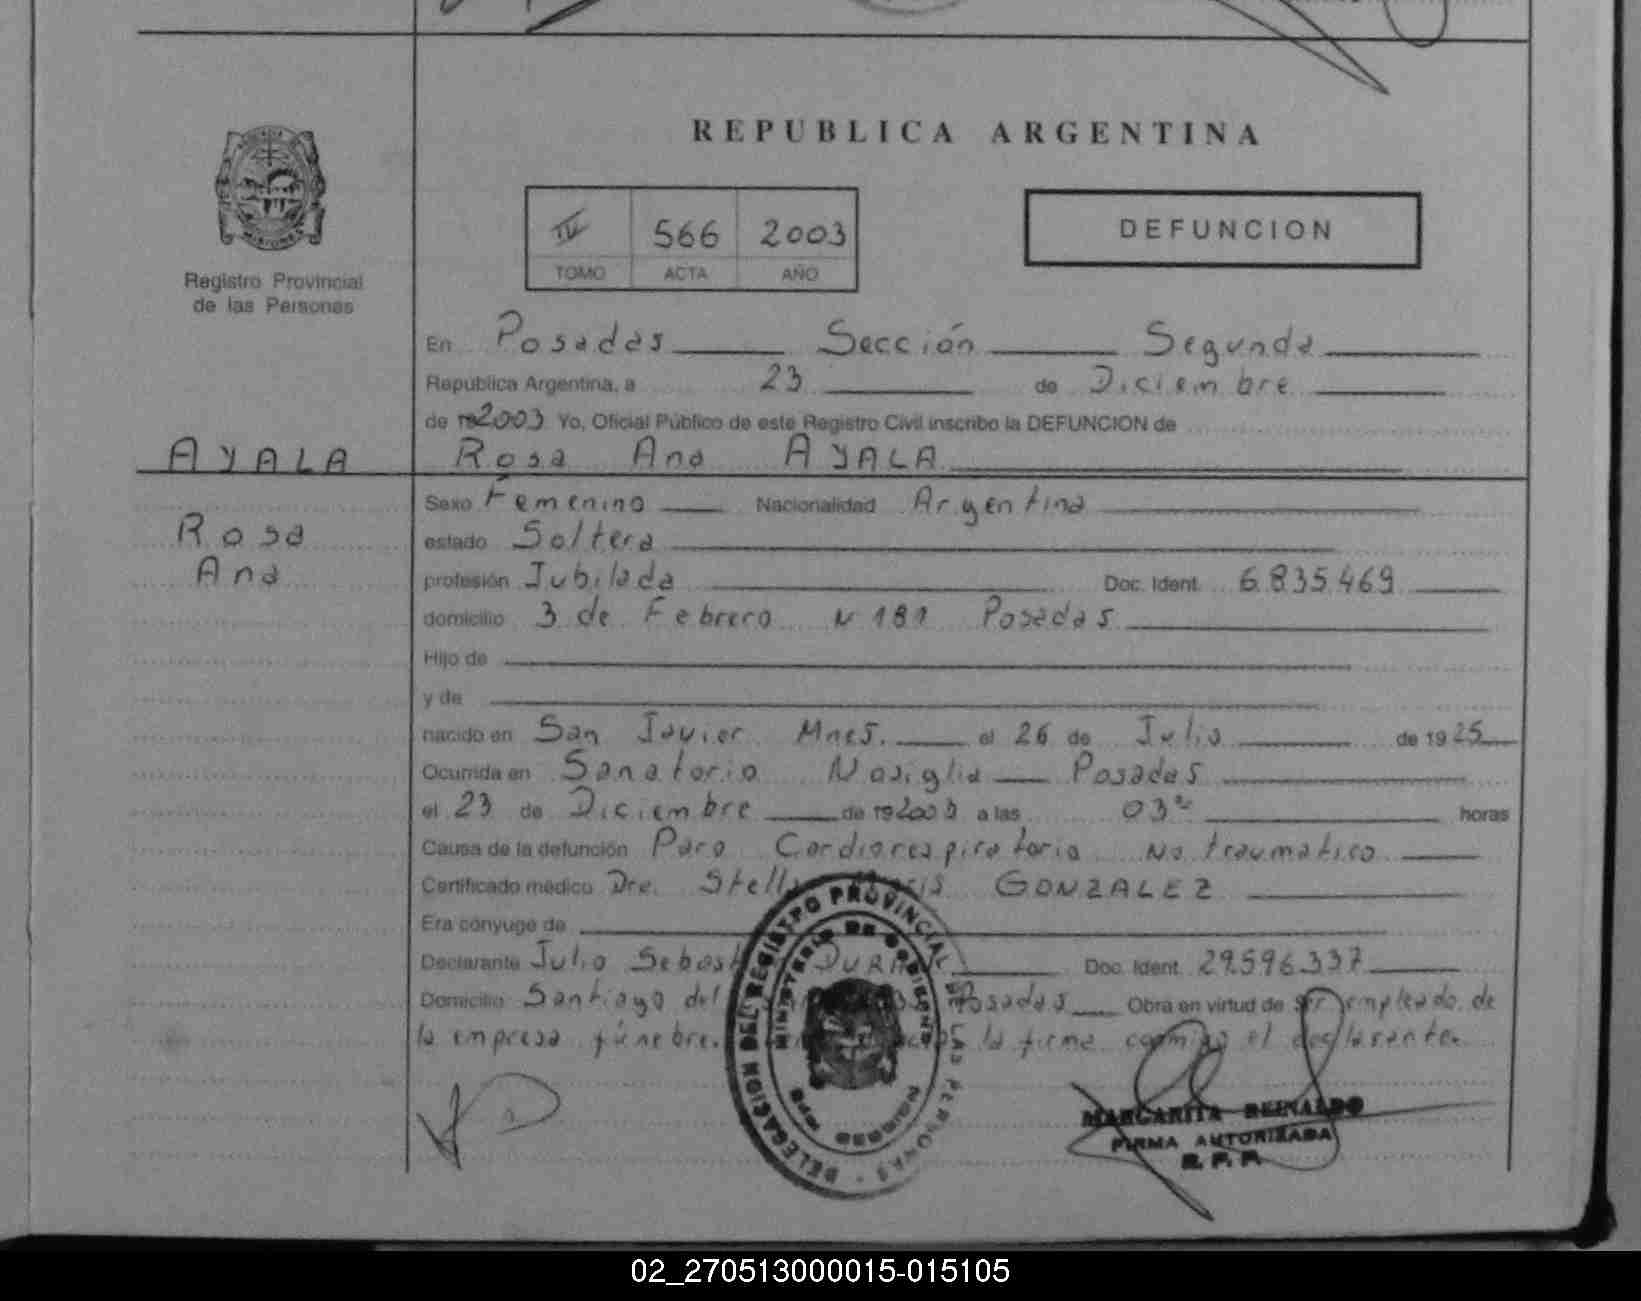 REPUBLICA ARGENTINA
MISIONES
Registro Provincial
de las Personas
IV 566 2003
TOMO ACTA AÑO
DEFUNCION
En Posadas Sección Segunda
República Argentina, a 23 de Diciembre
de 192003 Yo, Oficial Público de este Registro Civil inscribo la DEFUNCION de
AYALA Rosa Ana AYALA
Sexo Femenino Nacionalidad Argentina
Rosa
estado Soltera
Ana
profesión Jubilada Doc. Ident. 6.835.469
domicilio 3 de Febrero N 181 Posadas
Hijo de
y de
nacido en San Javier Mnes. el 26 de Julio de 1925
Ocurrida en Sanatorio Nosiglia Posadas
el 23 de Diciembre de 192003 a las 03 horas
Causa de la defunción Paro Cardiorespiratorio No traumatico
Certificado médico Dra. Stella Maris GONZALEZ
Era cónyuge de
Declarante Julio Sebast DURA Doc. Ident. 29.596.337
Domicilio Santiago del Posadas Obra en virtud de ser empleado de
la empresa fúnebre. la firma conmigo el declarante.
DELEGACION DEL REGISTRO PROVINCIAL DE LAS PERSONAS
MINISTERIO DE GOBIERNO
MARGARITA REINALDO
FIRMA AUTORIZADA
R. P. P.
02_270513000015-015105